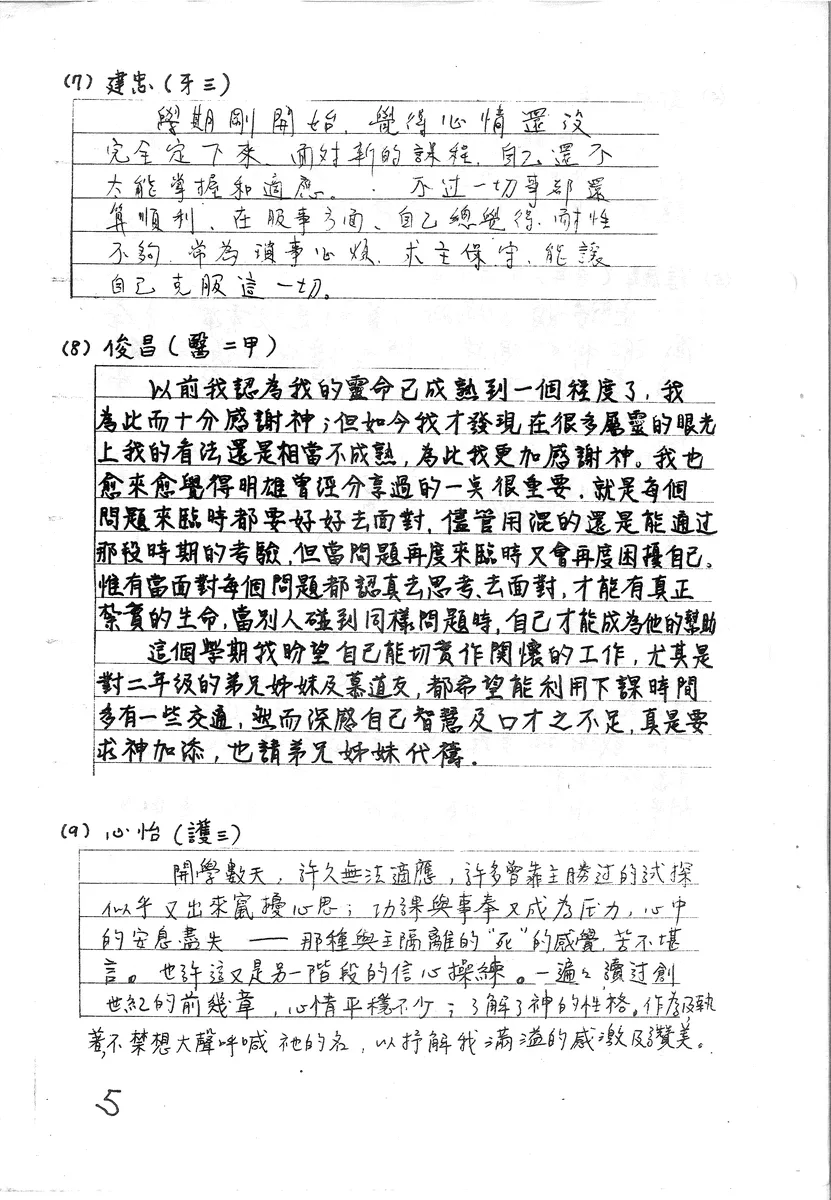 (7) 建忠(牙三)
學期剛開始，覺得心情還沒
完全定下來、面对新的課程、自己還不
太能掌握和適應。不过一切事都還
算順利、在服事方面、自己總覺得耐性
不夠、常為瑣事心煩、求主保守、能讓
自己克服這一切。
(8) 俊昌(醫二甲)
以前我認為我的靈命已成熟到一個程度了，我
為此而十分感謝神；但如今我才發現在很多屬靈的眼光
上我的看法還是相當不成熟，為此我更加感謝神。我也
愈來愈覺得明雄曾經分享過的一点很重要，就是每個
問題來臨時都要好好去面對，儘管用混的還是能通过
那段時期的考驗，但當問題再度來臨時又會再度困擾自己。
惟有當面對每個問題都認真去思考、去面對，才能有真正
紮實的生命，當別人碰到同樣問題時，自己才能成為他的幫助
這個學期我盼望自己能切實作関懷的工作，尤其是
對二年級的弟兄姊妹及慕道友，都希望能利用下課時間
多有一些交通，然而深感自己智慧及口才之不足，真是要
求神加添，也請弟兄姊妹代禱．
(9) 心怡(護三)
開學數天，許久無法適應，許多曾靠主勝过的試探
似乎又出來竄擾心思；功課與事奉又成為压力，心中
的安息盡失——那種與主隔離的"死"的感覺，苦不堪
言。也許這又是另一階段的信心操練。一遍々讀过創
世紀的前幾章，心情平穩不少；了解了神的性格。作為及執
著，不禁想大聲呼喊祂的名，以抒解我滿溢的感激及讚美。
5